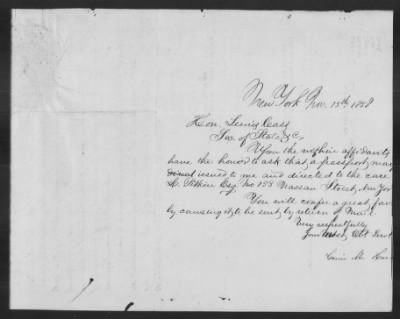 New York Nov. 15th 1858
Hon. Lewis Cass
Sec of State &c.
Upon the within affidavits
have the honor to ask that a passport may
issued to me and directed to the care
Esq. No 158 Nassau Street, New Yor
You will confer a great fav
by causing it to be sent by return of Mail
Very respectfully
Your Obt Servt
Louis M.